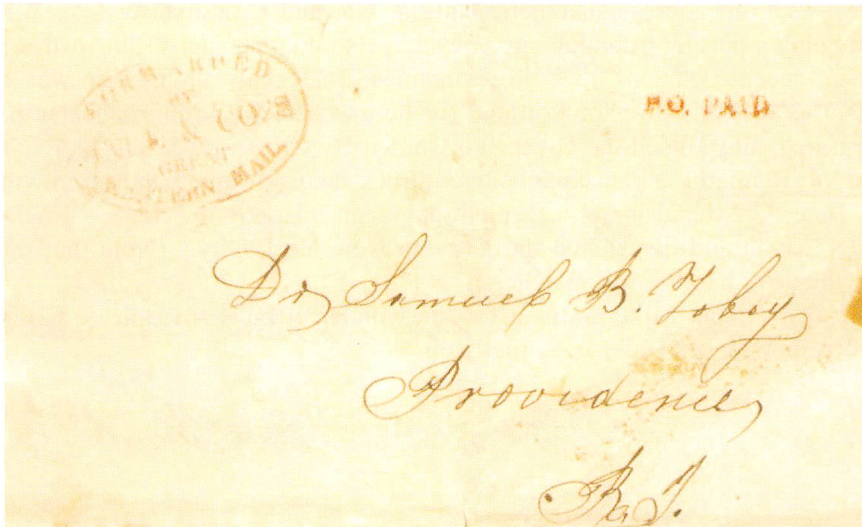 FORWARDED
BY
& CO'S
GREAT
MAIL
P.O. PAID
Dr Samuel B. Tobey
Providence
R.I.